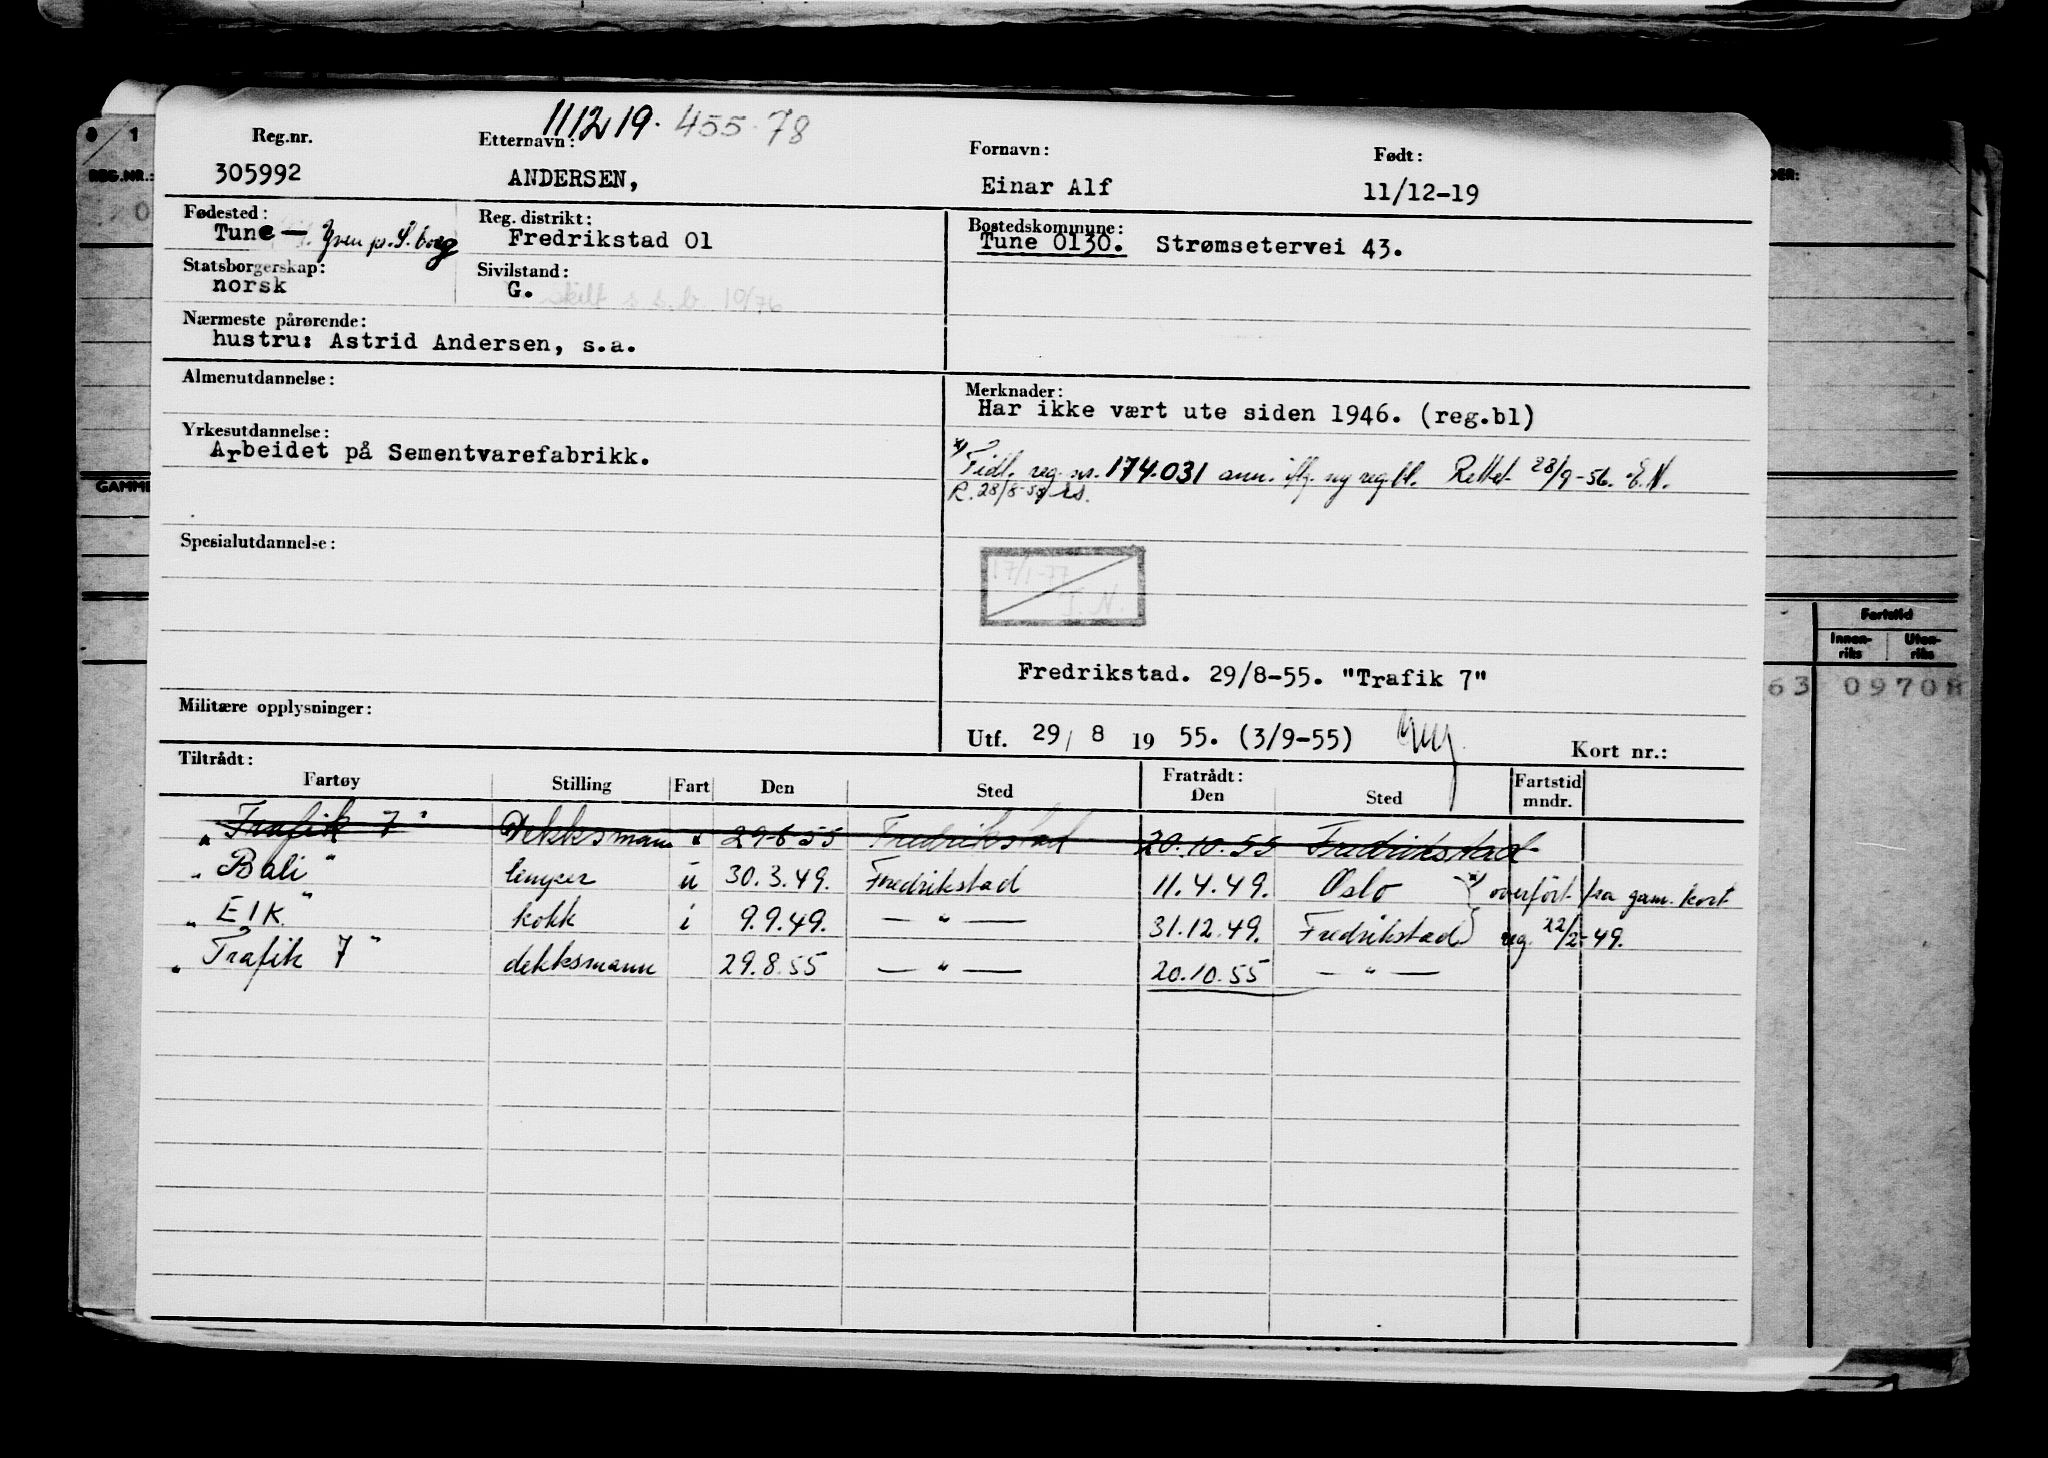 111219. 455.78
Reg.nr. Etternavn: Fornavn: Født:
305992 ANDERSEN, Einar Alf 11/12-19
Fødested: Reg. distrikt: Bostedskommune:
Tune — Fredrikstad 01 Tune 0130. Strømsetervei 43.
Statsborgerskap: Sivilstand:
norsk G. skilt s.s.b. 10/76
Nærmeste pårørende:
hustru: Astrid Andersen, s.a.
Almenutdannelse: Merknader:
Har ikke vært ute siden 1946. (reg.bl)
Yrkesutdannelse:
Arbeidet på Sementvarefabrikk.
*) Tidl. reg. nr. 174.031 ann. iflg. ny reg.bl. Rettet 28/9-56. E.N.
R. 28/8-58
Spesialutdannelse:
17/1-77
I.N.
Fredrikstad. 29/8-55. "Trafik 7"
Militære opplysninger:
Utf. 29/ 8 19 55. (3/9-55) Kort nr.:
Tiltrådt: Fratrådt:
Fartøy Stilling Fart Den Sted Den Sted Fartstid mndr.
"Trafik 7" Dekksmann 29-8-55 Fredrikstad 20.10.55 Fredrikstad
"Bali" lemper u 30.3.49. Fredrikstad 11.4.49. Oslo *) overført fra gam. kort
"EIK" kokk i 9.9.49. — " — 31.12.49. Fredrikstad reg. 22/2-49.
"Trafik 7" dekksmann 29.8.55 — " — 20.10.55 — " —
REG.NR.:
GAMME
Fartstid
Innen-riks Uten-riks
63 09708